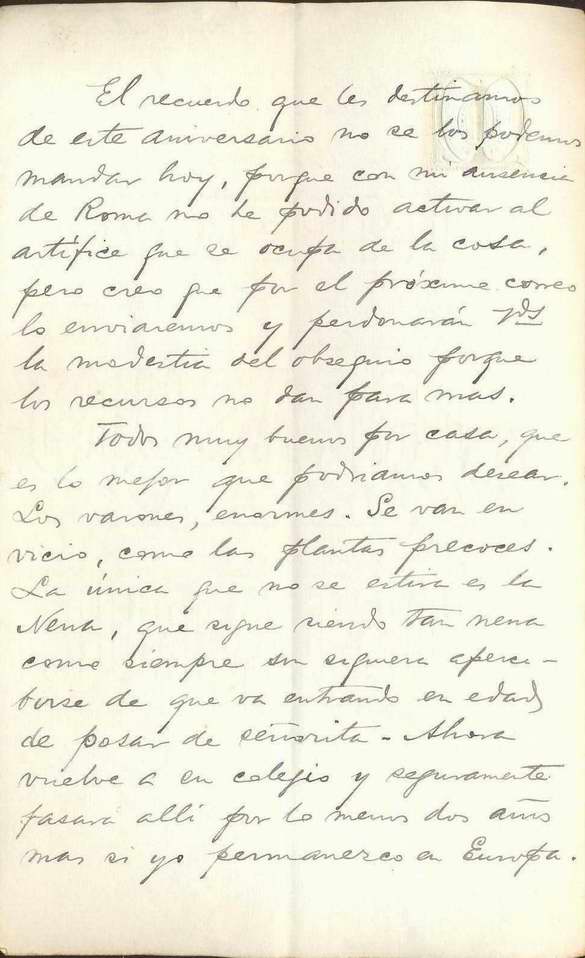 El recuerdo que les destinamos
de este aniversario no se los podemos
mandar hoy, porque con mi ausencia
de Roma no he podido activar al
artífice que se ocupa de la cosa,
pero creo que por el próximo correo
lo enviaremos y perdonarán Vds
la modestia del obsequio porque
los recursos no dan para mas.
Todos muy buenos por casa, que
es lo mejor que podriamos desear.
Los varones, enormes. Se van en
vicio, como las plantas precoces.
La única que no se estira es la
Nena, que sigue siendo tan nena
como siempre sin siquiera aperci-
birse de que va entrando en edad
de posar de señorita - Ahora
vuelve a su colegio y seguramente
pasara allí por lo menos dos años
mas si yo permanezco en Europa.